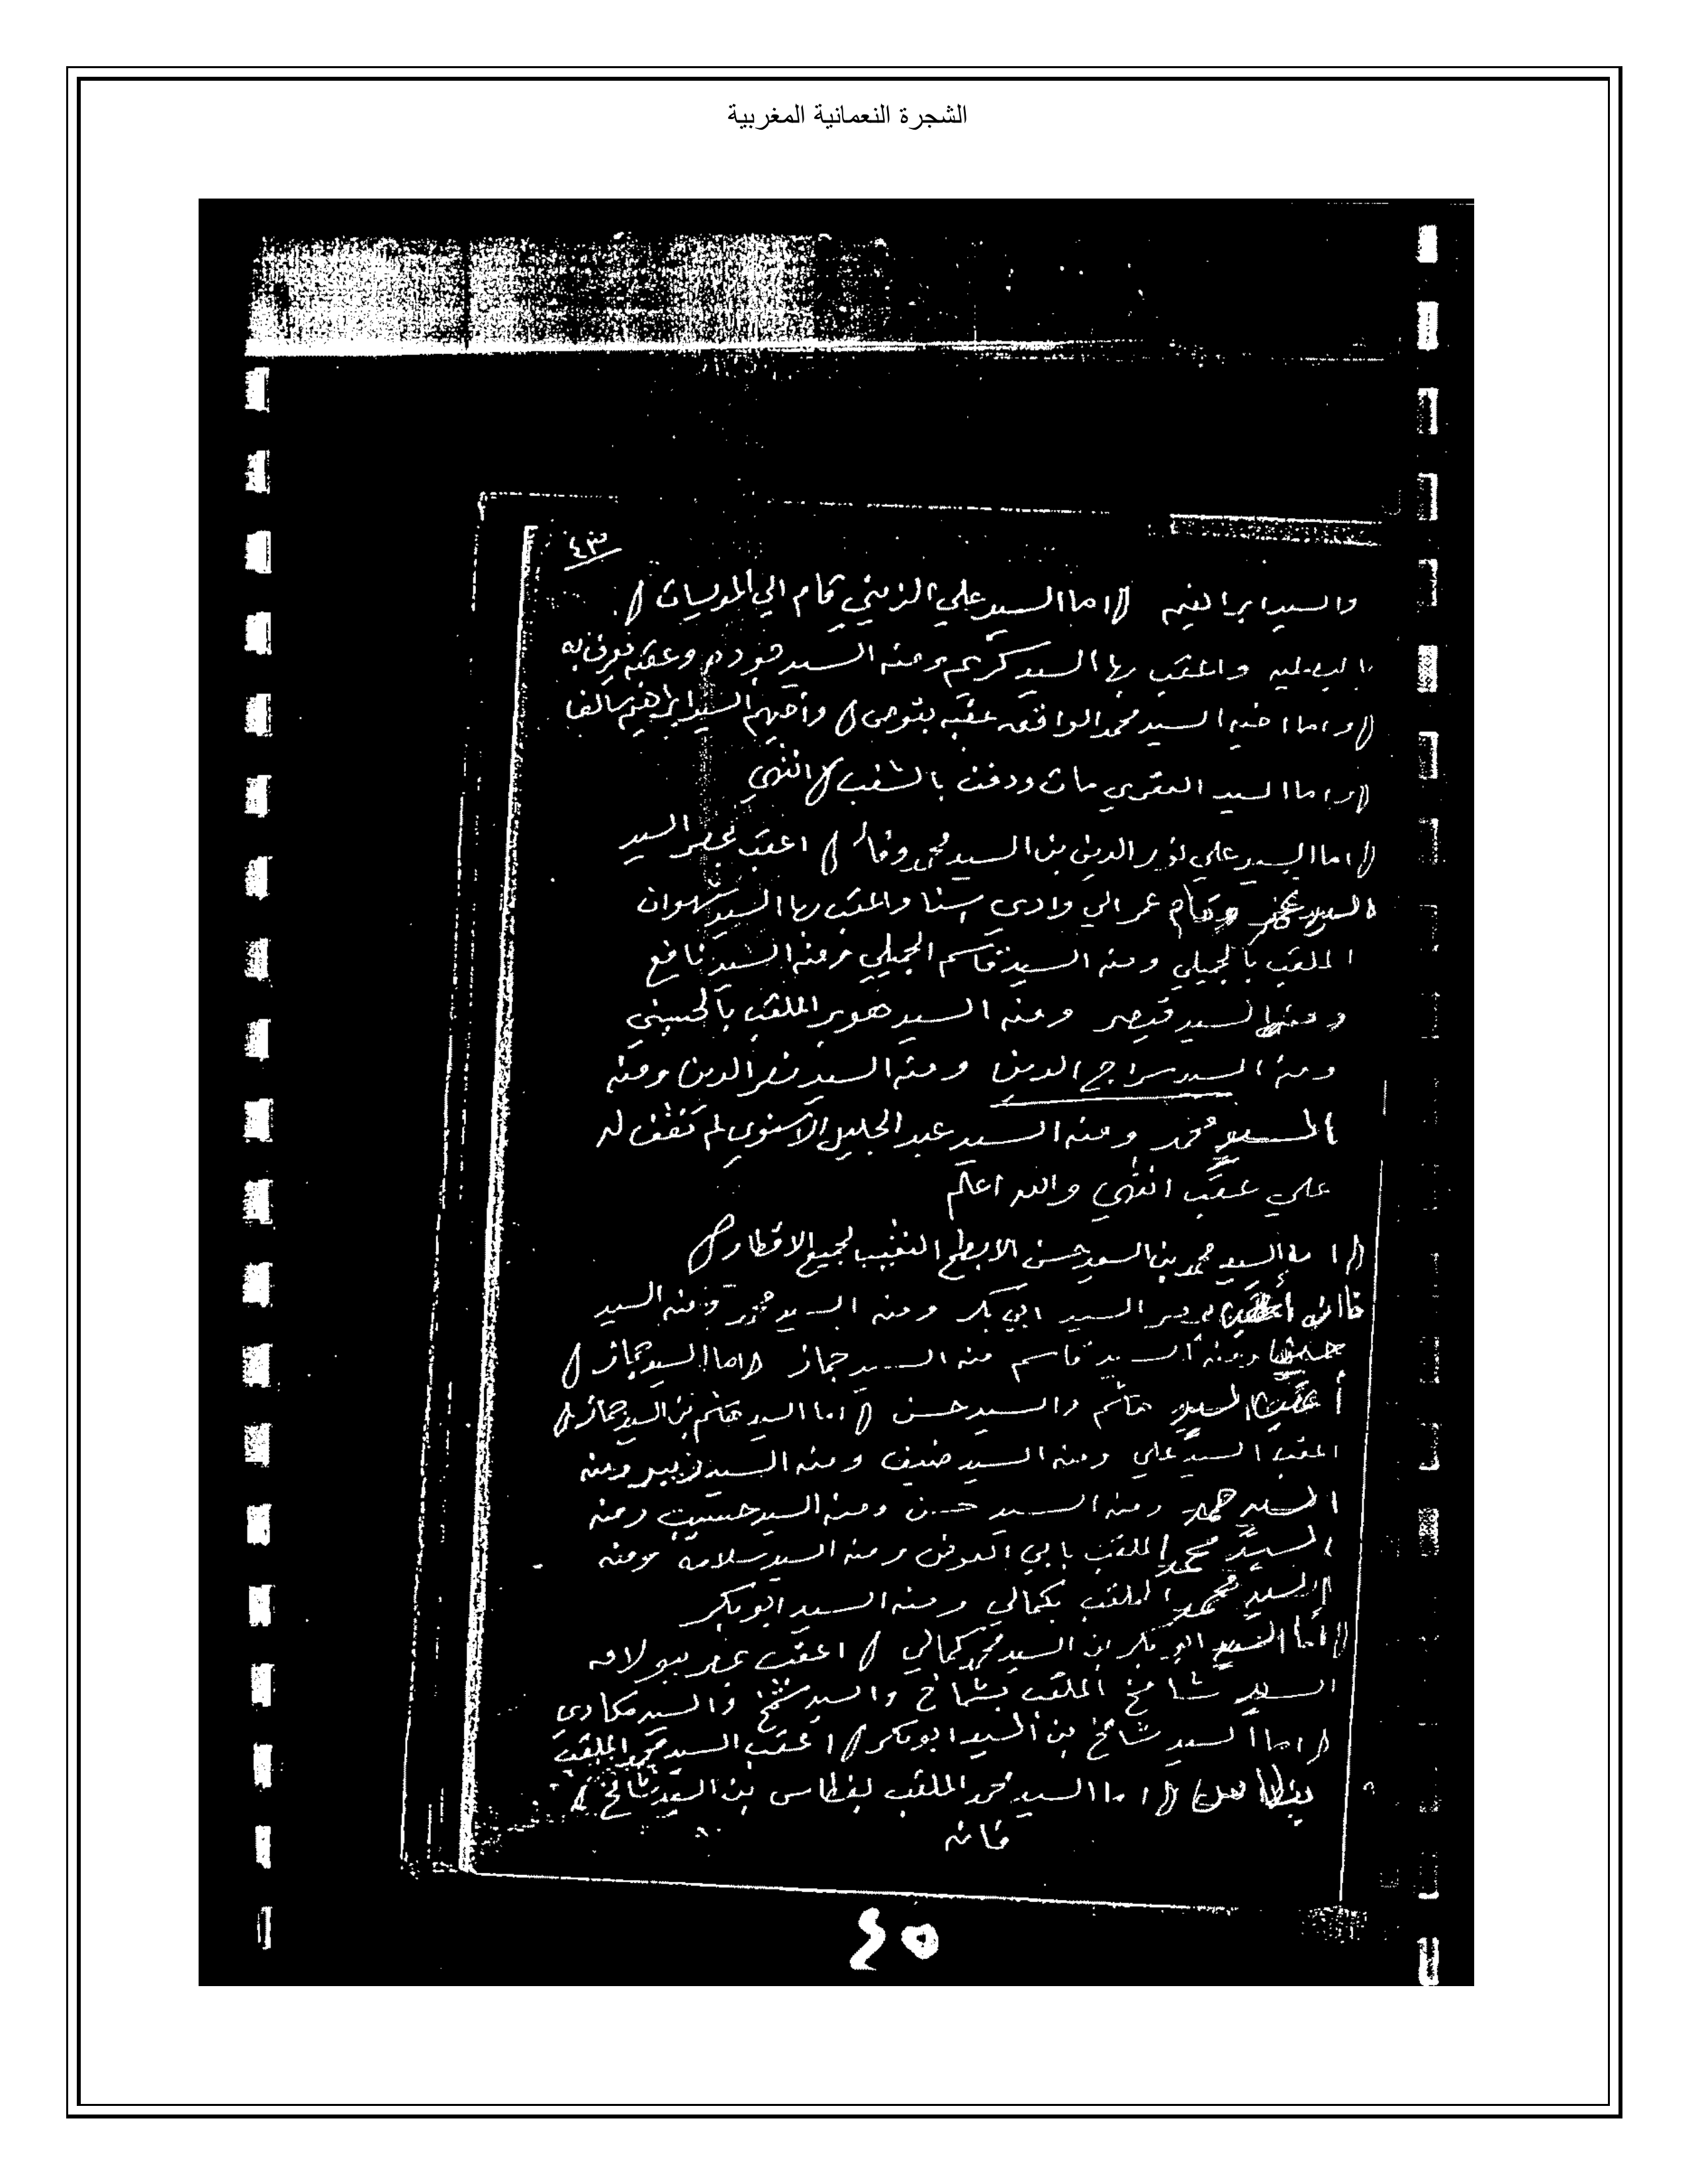 الشجرة النعمانية المغربية
٤٣
والسيد ابرا الغيم ( اما السيد علي الزيني قام الي
واعقب بها السيد كريم ومنه السيد وعقبه يعرف به
( واما اخيه السيد محمد الواقف عقبه بتوحى ) وأخيهم السيد ابراهيم سالفا
( واما السيد المقري مات ودفن بالشغب ) انتهي
( اما السيد علي نور الدين بن السيد محمد وفا ) اعقب بمصر السيد
السيد عمر وقام عمر الي وادي اسنا واعقب بها السيد شهوان
الملقب بالجميلي ومنه السيد قاسم الجميلي ومنه السيد نافع
ومنه السيد قيصر ومنه السيد هوبر الملقب بالحسيني
ومنه السيد سراج الدين ومنه السيد نصر الدين ومنه
السيد محمد ومنه السيد عبد الجليل الاسنوي لم نقف له
علي عقب انتهي والله اعلم
( اما السيد محمد بن السيد حسن الابطح النقيب لجميع الاقطار )
فانه السيد ابي بكر ومنه السيد ومنه السيد
ومنه السيد قاسم منه السيد جماز ( اما السيد جماز )
أعقب السيد هاشم والسيد حسن ( اما السيد هاشم بن السيد جماز )
اعقب السيد علي ومنه السيد ضيف ومنه السيد زبير ومنه
السيد حمد ومنه السيد حسن ومنه السيد حسيب ومنه
السيد محمد الملقب بابي العوض ومنه السيد سلامه ومنه
السيد محمد الملقب بكمالي ومنه السيد ابو بكر
( أما السيد ابو بكر ابن السيد محمد كمالي ) اعقب بمصر ببولاقه
السيد شامخ الملقب بشماخ والسيد شمخ والسيد مكادي
( اما السيد شامخ بن السيد ابو بكر ) اعقب السيد محمد الملقب
بغطاس ( اما السيد محمد الملقب بغطاس بن السيد شامخ )
فانه
٤٥